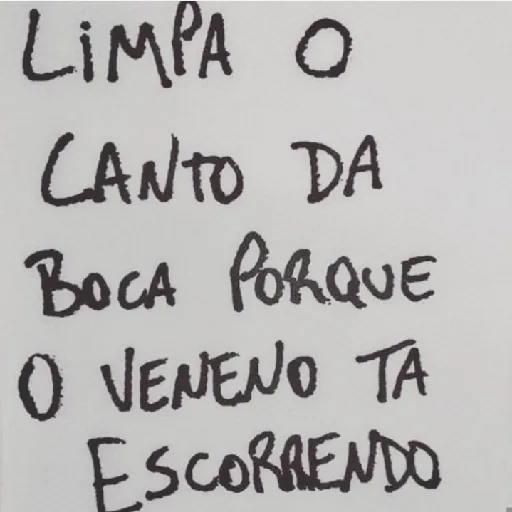 LIMPA O
CANTO DA
BOCA PORQUE
O VENENO TA
ESCORRENDO